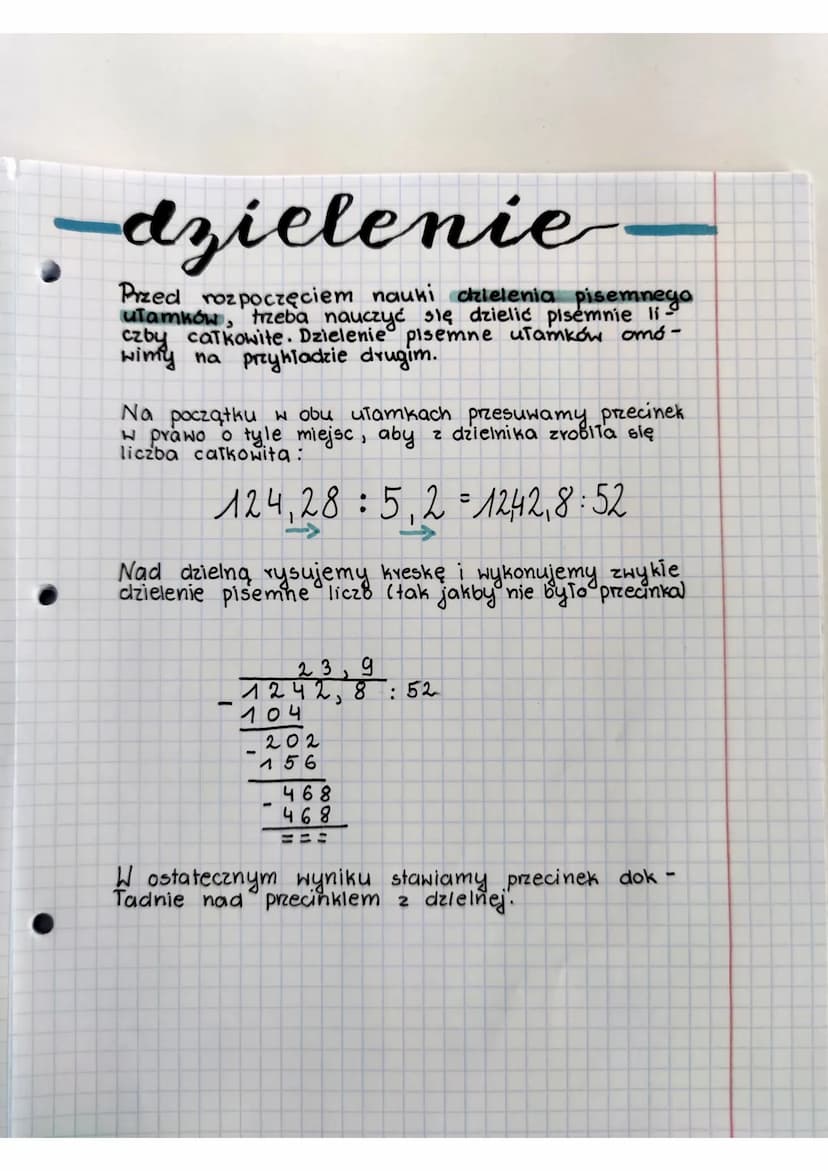 dzielenie
Przed rozpoczęciem nauki dzielenia pisemnego
ułamków, trzeba nauczyć się dzielić pisemnie li-
czby całkowite. Dzielenie pisemne ułamków omó-
wimy na przykładzie drugim.
Na początku w obu ułamkach przesuwamy przecinek
w prawo o tyle miejsc, aby z dzielnika zrobiła się
liczba całkowita:
124,28 : 5,2 = 1242,8 : 52
Nad dzielną rysujemy kreskę i wykonujemy zwykłe
dzielenie pisemne liczb (tak jakby nie było przecinka)
23,9
- 1242,8 : 52
104
- 202
156
- 468
468
= = =
W ostatecznym wyniku stawiamy przecinek dok-
ładnie nad przecinkiem z dzielnej.